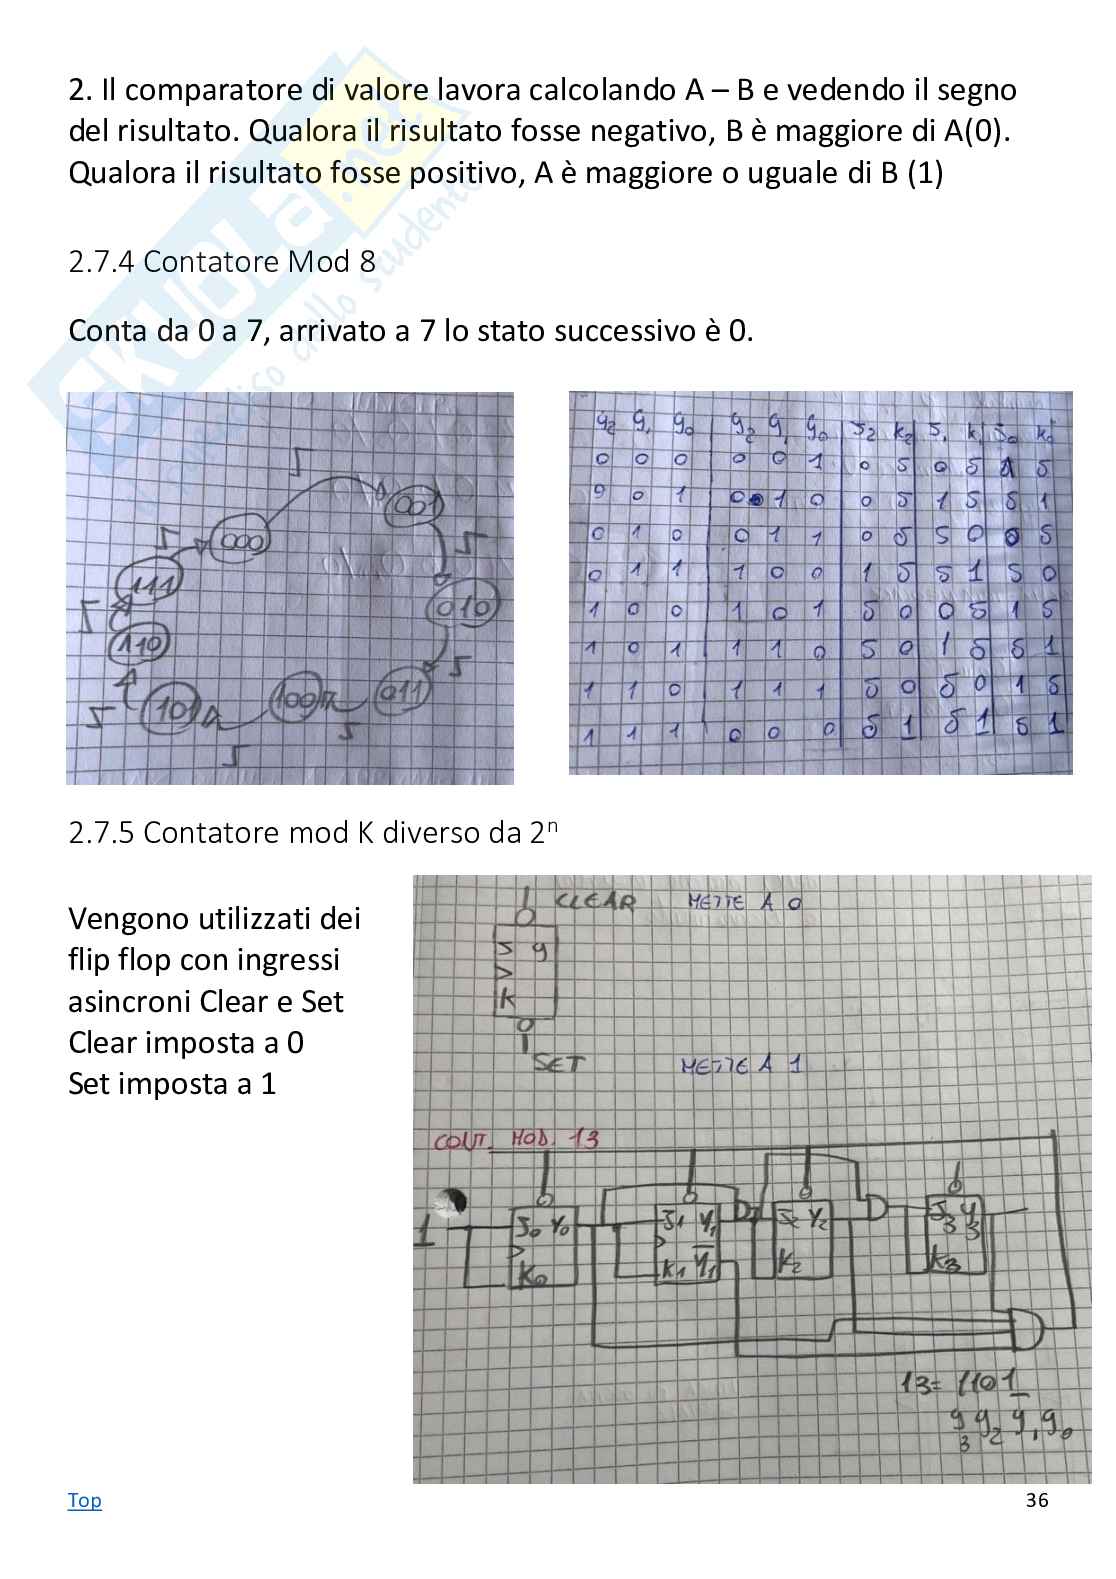 2. Il comparatore di valore lavora calcolando A – B e vedendo il segno
del risultato. Qualora il risultato fosse negativo, B è maggiore di A(0).
Qualora il risultato fosse positivo, A è maggiore o uguale di B (1)
2.7.4 Contatore Mod 8
Conta da 0 a 7, arrivato a 7 lo stato successivo è 0.
000
001
010
011
100
101
110
111
y2 y1 y0 y2 y1 y0 J2 k2 J1 k1 J0 k0
0 0 0 0 0 1 0 δ 0 δ 1 δ
0 0 1 0 1 0 0 δ 1 δ δ 1
0 1 0 0 1 1 0 δ δ 0 0 δ
0 1 1 1 0 0 1 δ δ 1 δ 0
1 0 0 1 0 1 δ 0 0 δ 1 δ
1 0 1 1 1 0 δ 0 1 δ δ 1
1 1 0 1 1 1 δ 0 δ 0 1 δ
1 1 1 0 0 0 δ 1 δ 1 δ 1
2.7.5 Contatore mod K diverso da 2ⁿ
Vengono utilizzati dei
flip flop con ingressi
asincroni Clear e Set
Clear imposta a 0
Set imposta a 1
CLEAR METTE A 0
J y
K
SET METTE A 1
CONT. MOD. 13
1 J0 Y0 J1 Y1 J2 Y2 J3 Y3
K0 K1 Y̅1 K2 K3
13= 1101
y3 y2 y1 y0
Top
36
SKUOLA.net
il paradiso dello studente